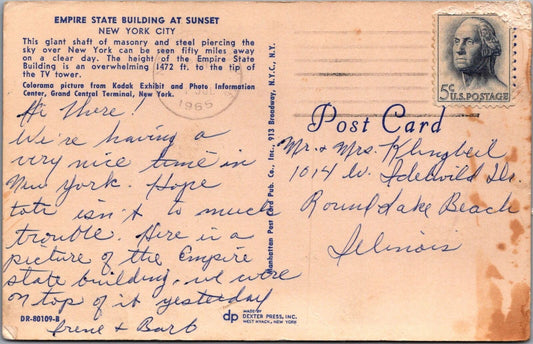 EMPIRE STATE BUILDING AT SUNSET
NEW YORK CITY
This giant shaft of masonry and steel piercing the
sky over New York can be seen fifty miles away
on a clear day. The height of the Empire State
Building is an overwhelming 1472 ft. to the tip of
the TV tower.
Colorama picture from Kodak Exhibit and Photo Information
Center, Grand Central Terminal, New York.
1965
Hi There!
We're having a
very nice time in
New York. Hope
tote isn't to much
trouble. Here is a
picture of the Empire
state building, we were
on top of it yesterday
Irene + Barb
DR-80109-B
Manhattan Post Card Pub. Co., Inc., 913 Broadway, N.Y.C., N.Y.
dp
MADE BY
DEXTER PRESS, INC.
WEST NYACK, NEW YORK
5¢
U.S. POSTAGE
Post Card
Mr. + Mrs. Klingbeil
1014 W. Idelwild Dr.
Round Lake Beach
Illinois